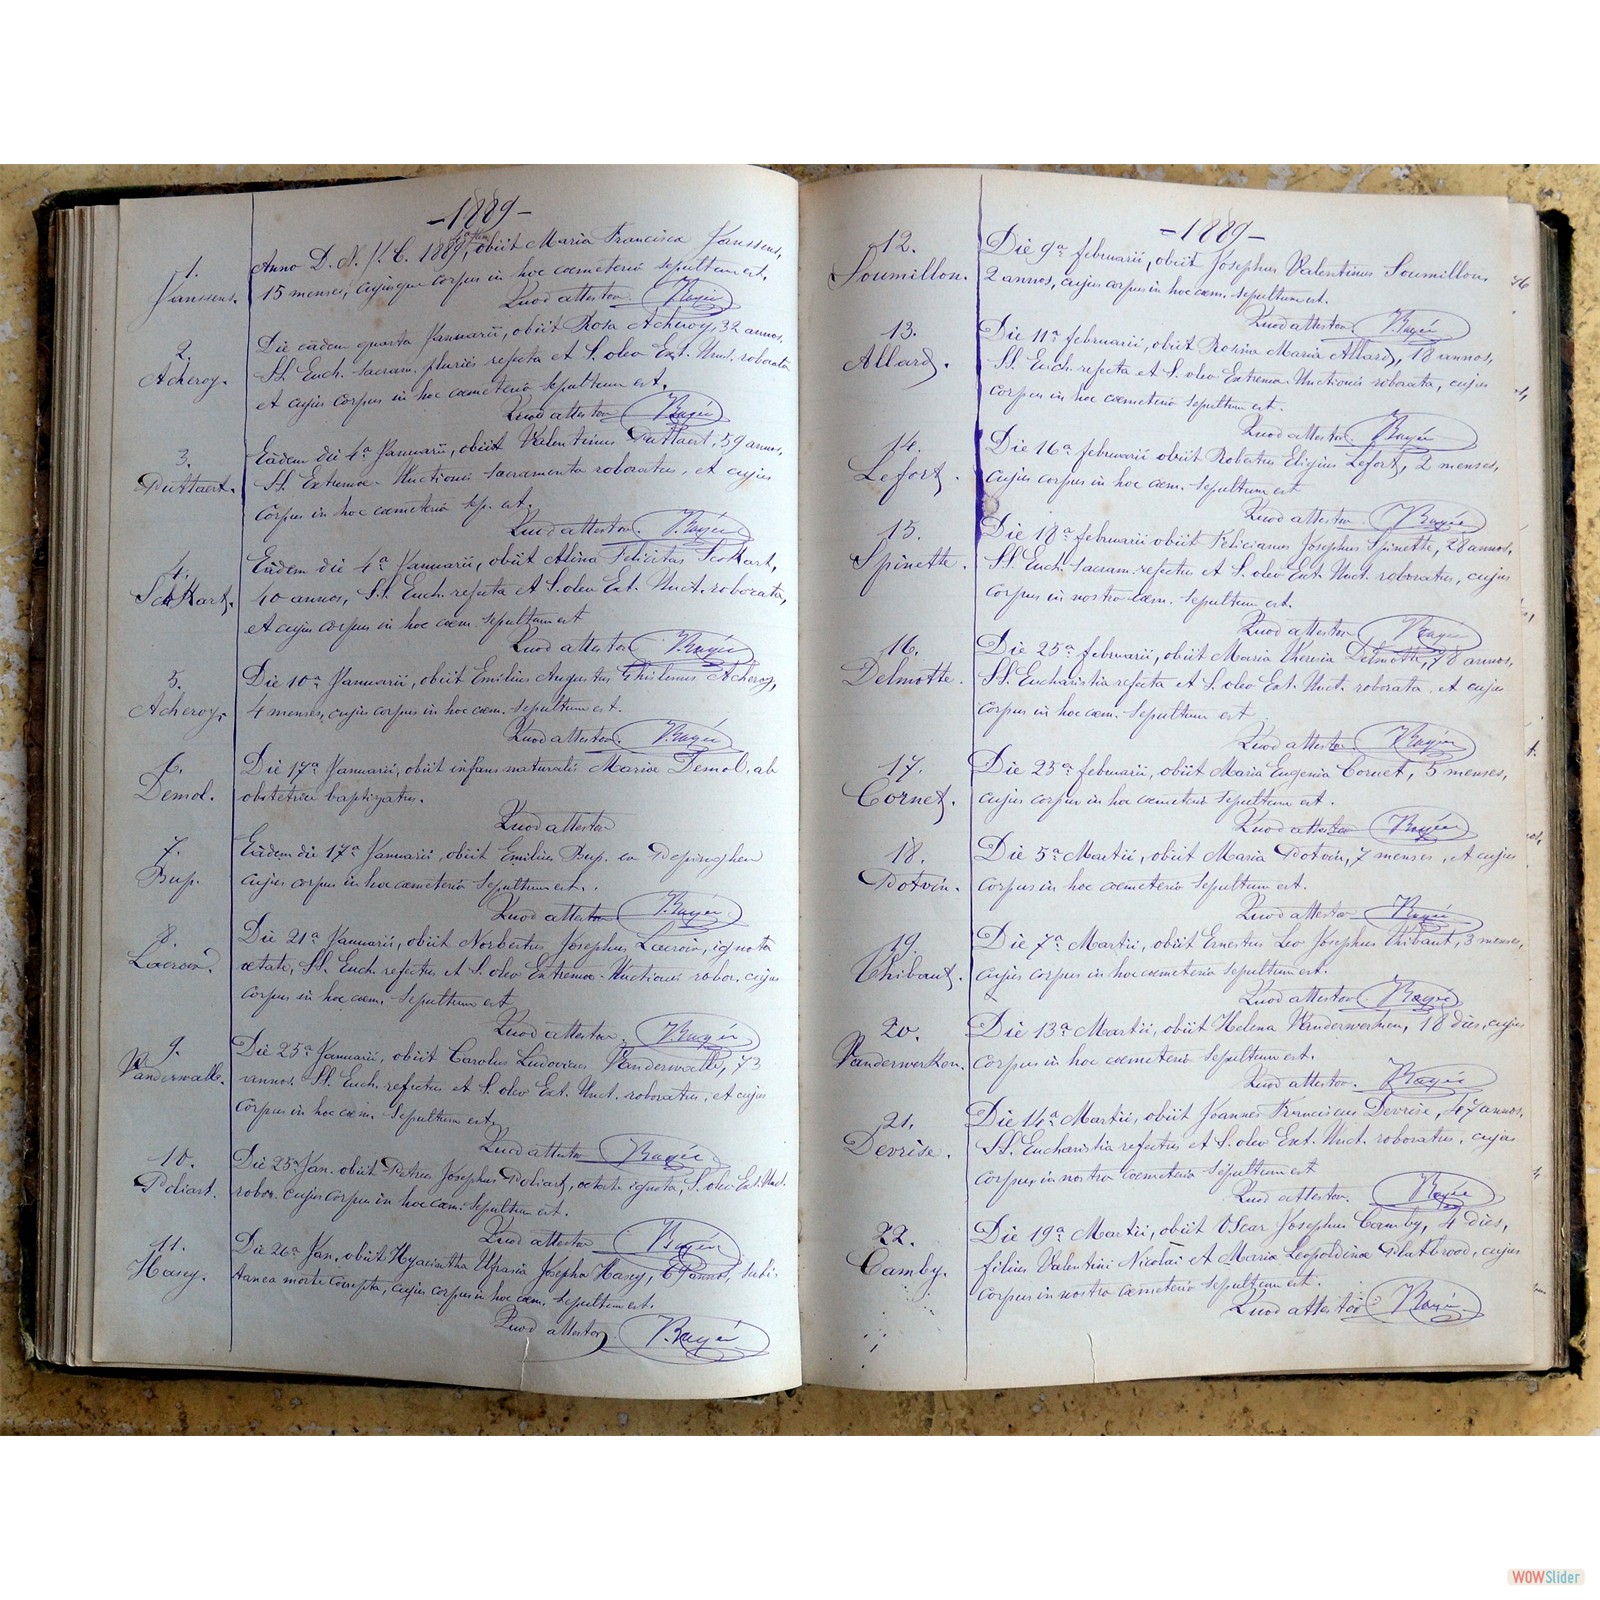 -1889-
1.
Janssens.
Anno D. N. J. C. 1889, obiit Maria Francisca Janssens,
15 menses, cujusque corpus in hoc cœmeterio sepultum est.
Quod attestor
2.
Acheroy.
Die eâdem quarta Januarii, obiit Rosa Acheroy, 32 annos,
SS. Euch. sacram. pluries refecta et S. oleo Ext. Unct. roborata
et cujus corpus in hoc cœmeterio sepultum est.
Quod attestor
3.
Puttaert.
Eâdem die 4ª Januarii, obiit Valentinus Puttaert, 59 annos,
SS. Extremæ-Unctionis sacramento roboratus, et cujus
corpus in hoc cœmeterio sep. est.
Quod attestor
4.
Eâdem die 4ª Januarii, obiit Alina Felicitas
40 annos, SS. Euch. refecta et S. oleo Ext. Unct. roborata,
et cujus corpus in hoc cœm. sepultum est
Quod attestor
5.
Acheroy.
Die 10ª Januarii, obiit Emilius Augustus Ghislenus Acheroy,
4 menses, cujus corpus in hoc cœm. sepultum est.
Quod attestor
6.
Demol.
Die 17ª Januarii, obiit infans naturalis Mariæ Demol, ab
obstetrice baptizatus.
Quod attestor
7.
Bup.
Eâdem die 17ª Januarii, obiit Emilius Bup.
cujus corpus in hoc cœmeterio sepultum est.
Quod attestor
8.
Lacroix.
Die 21ª Januarii, obiit Norbertus Josephus Lacroix, ignota
ætate, SS. Euch. refectus et S. oleo Extremæ-Unctionis robor. cujus
corpus in hoc cœm. sepultum est
Quod attestor
9.
Vanderwalle.
Die 25ª Januarii, obiit Carolus Ludovicus Vanderwalle, 73
annos. SS. Euch. refectus et S. oleo Ext. Unct. roboratus, et cujus
corpus in hoc cœm. sepultum est.
Quod attestor
10.
Poliart.
Die 25ª Jan. obiit Petrus Josephus Poliart, œtat. ignota, S. oleo Ext. Unct.
robor. cujus corpus in hoc cœm. sepultum est.
Quod attestor
11.
Hasey.
Die 26ª Jan. obiit Hyacintha Josepha Hasey, annos, subi-
tanea morte correpta, cujus corpus in hoc cœm. sepultum est.
Quod attestor
-1889-
12.
Soumillon.
Die 9ª februarii, obiit Josephus Valentinus Soumillon
2 annos, cujus corpus in hoc cœm. sepultum est.
Quod attestor
13.
Allard.
Die 11ª februarii, obiit Rosina Maria Allard, 18 annos,
SS. Euch. refecta et S. oleo Extremæ-Unctionis roborata, cujus
corpus in hoc cœmeterio sepultum est.
Quod attestor
14.
Lefort.
Die 16ª februarii obiit Robertus Eligius Lefort, 2 menses,
cujus corpus in hoc cœm. sepultum est
Quod attestor
15.
Spinette.
Die 18ª februarii obiit Felicianus Josephus Spinette, 28 annos,
SS. Euch. sacram. refectus et S. oleo Ext. Unct. roboratus, cujus
corpus in nostro cœm. sepultum est.
Quod attestor
16.
Delmotte.
Die 25ª februarii, obiit Maria Theresia Delmotte, 78 annos,
SS. Eucharistia refecta et S. oleo Ext. Unct. roborata et cujus
corpus in hoc cœm. sepultum est
Quod attestor
17.
Cornet.
Die 25ª februarii, obiit Maria Eugenia Cornet, 5 menses,
cujus corpus in hoc cœmeterio sepultum est.
Quod attestor
18.
Potvin.
Die 5ª Martii, obiit Maria Potvin, 7 menses, et cujus
corpus in hoc cœmeterio sepultum est.
Quod attestor
19.
Thibaut.
Die 7ª Martii, obiit Ernestus Leo Josephus Thibaut, 3 menses,
cujus corpus in hoc cœmeterio sepultum est.
Quod attestor
20.
Vanderwerken.
Die 13ª Martii, obiit Helena Vanderwerken, 18 dies, cujus
corpus in hoc cœmeterio sepultum est.
Quod attestor.
21.
Devrise.
Die 14ª Martii, obiit Joannes Franciscus Devrise, 47 annos,
SS. Eucharistia refectus et S. oleo Ext. Unct. roboratus, cujus
corpus in nostro cœmeterio sepultum est
Quod attestor.
22.
Camby.
Die 19ª Martii, obiit Oscar Josephus Camby, 4 dies,
filius Valentini Nicolai et Mariæ Leopoldinæ Platbrood, cujus
corpus in nostro cœmeterio sepultum est.
Quod attestor
WOWSlider